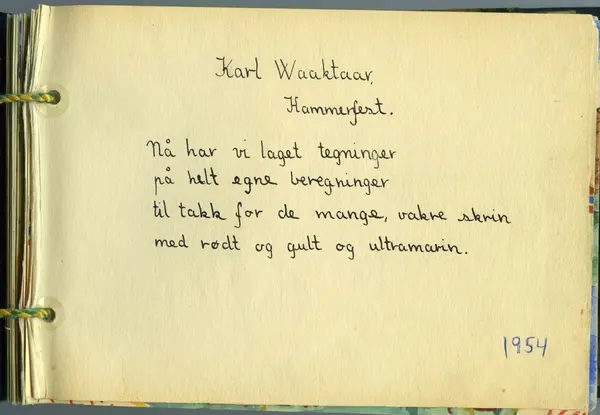 Karl Waaktaar,
Hammerfest.
Nå har vi laget tegninger
på helt egne beregninger
til takk for de mange, vakre skrin
med rødt og gult og ultramarin.
1954